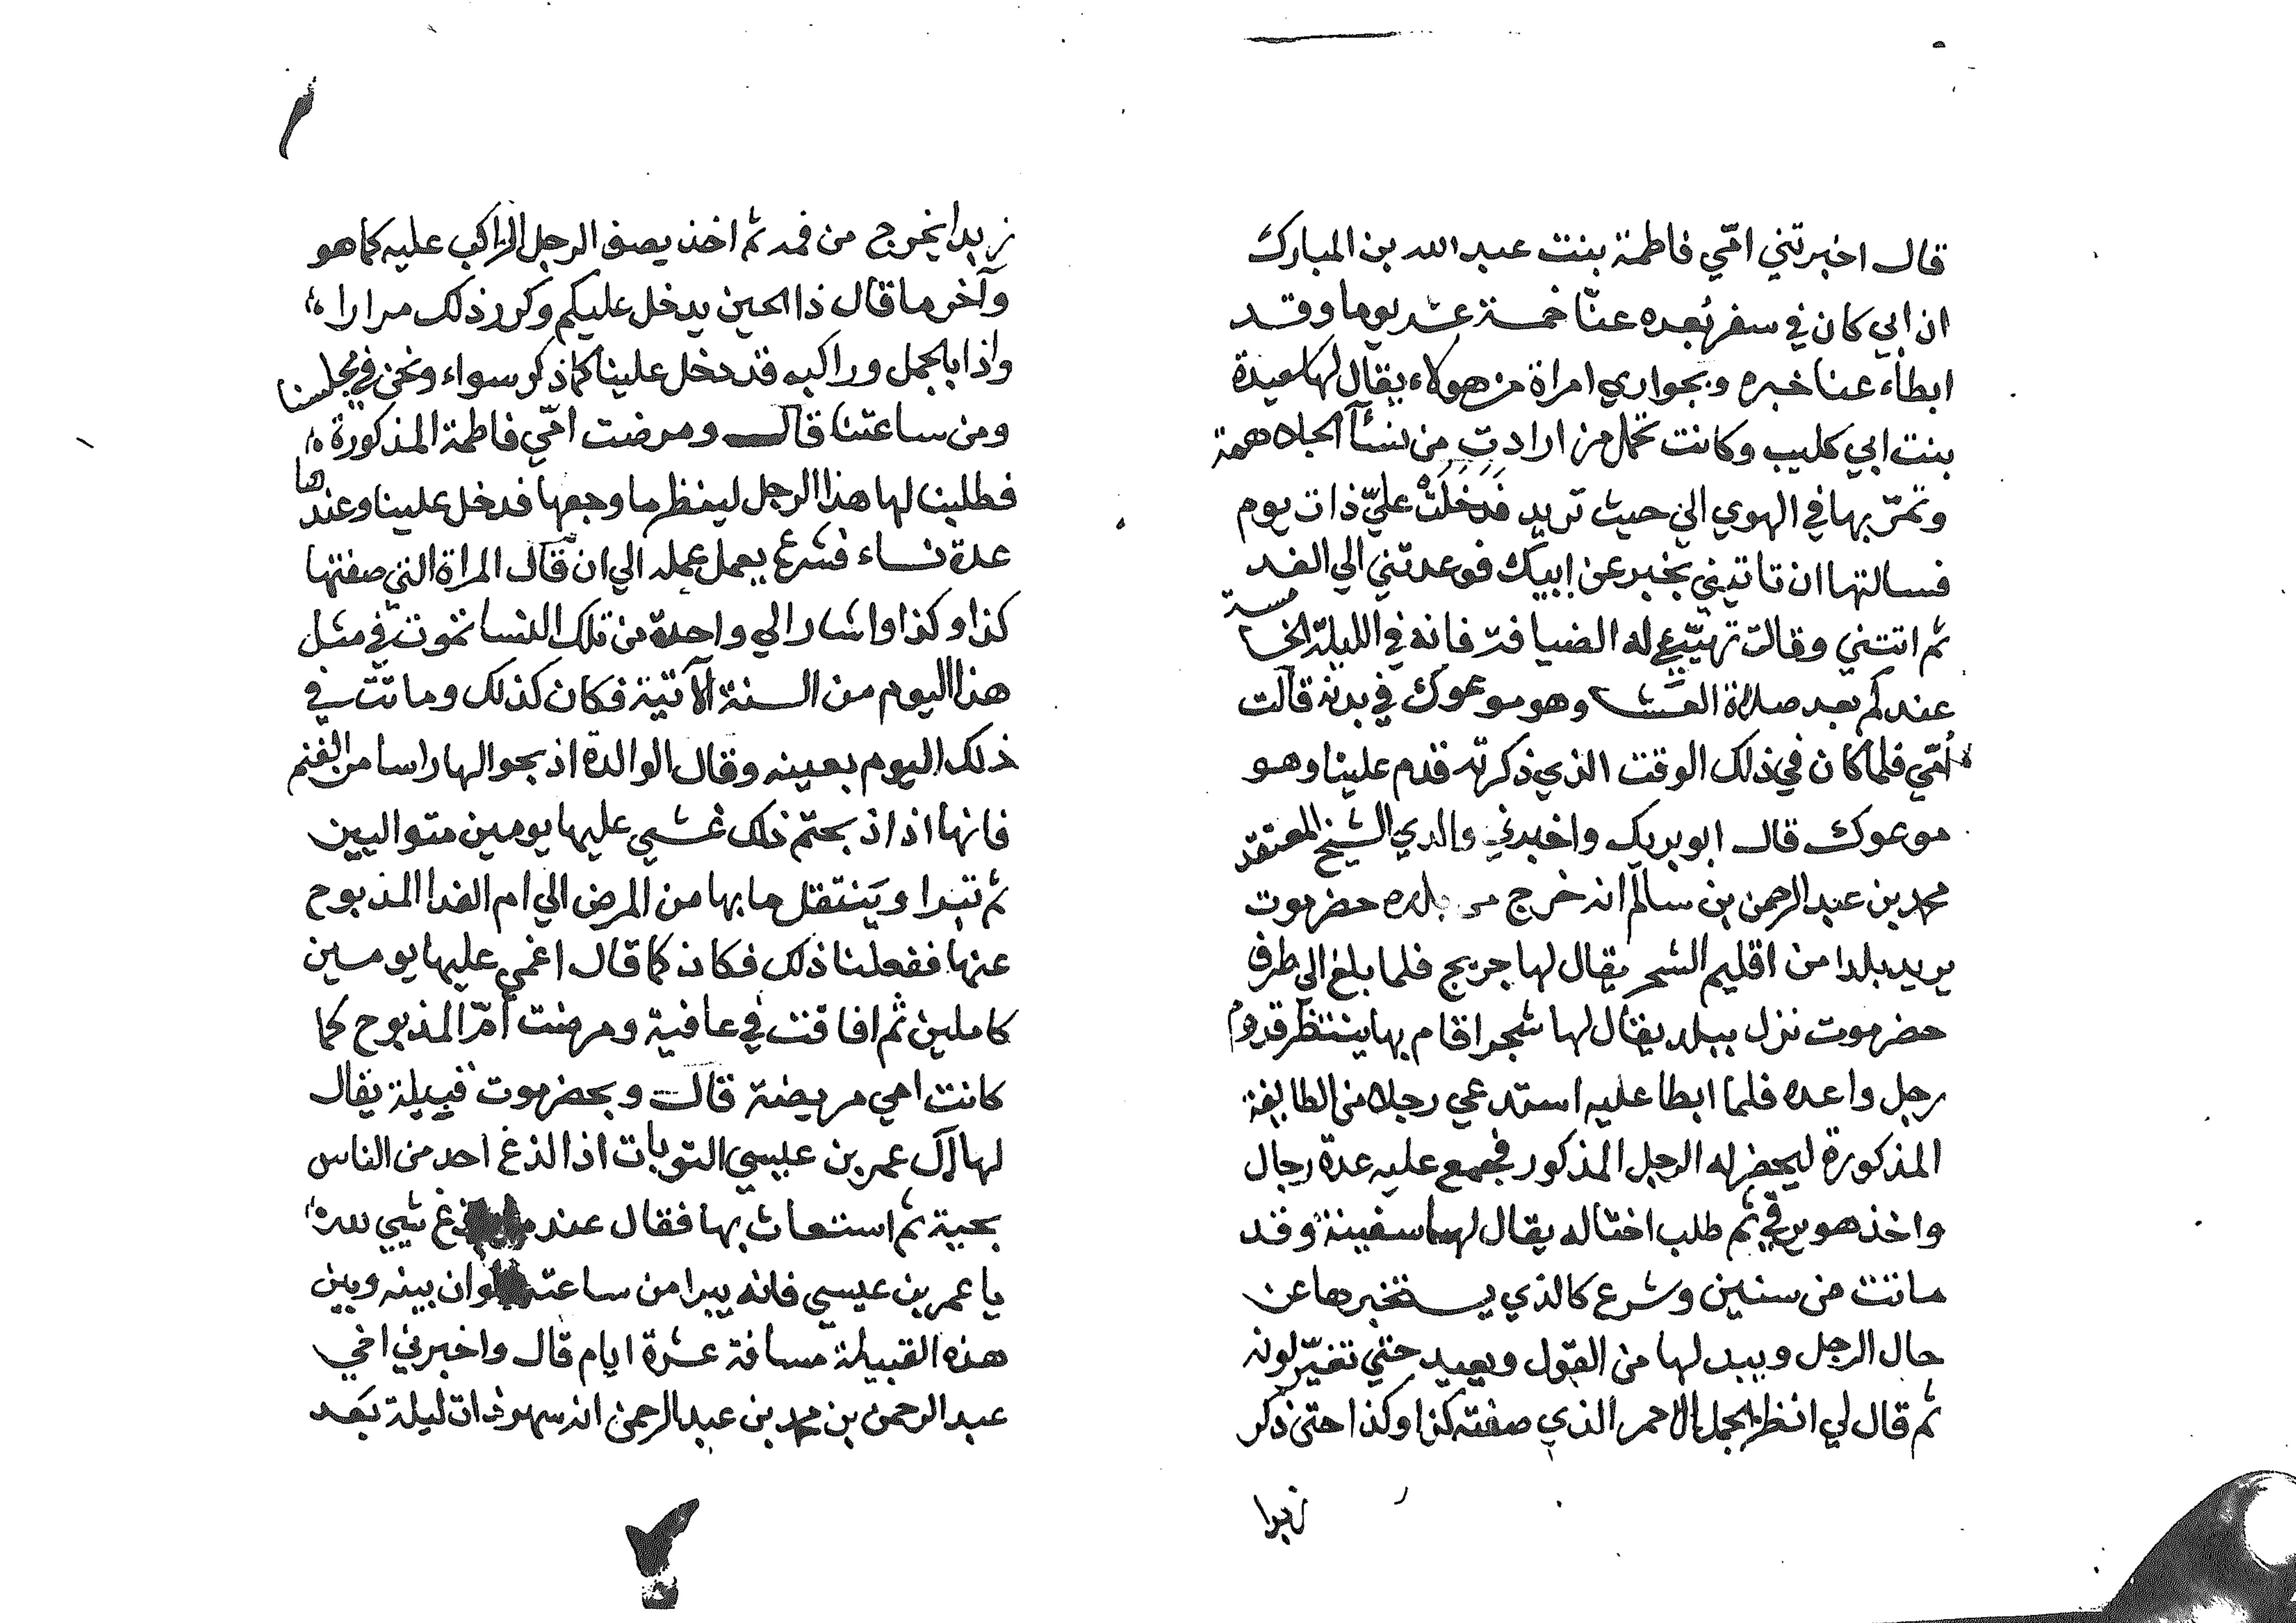 قال اخبرتني امّي فاطمة بنت عبد الله بن المبارك
ان ابي كان في سفر بُعده عنّا خمسة عشر يوما وقد
ابطأء عنا خبره وبجواري امراة من هولاء يقال لها سعيدة
بنت ابي كليب وكانت تحمل من ارادت من نسآ الجلاهمة
وتمرّ بها في الهوي الي حيث تريد فَدَخَلَتْ عليّ ذات يوم
فسالتها ان تاتيني بخبر عن ابيك فوعدتني الي الغد
ثم اتتني وقالت تهيّي له الضيافة فانه في الليلة الخامسة
عندكم بعد صلاة العشا وهو موعوك في بدنه قالت
أمّي فلما كان في ذلك الوقت الذي ذكرته قدم علينا وهو
موعوك قال ابو بريك واخبرني والدي الشيخ المعتقد
محمد بن عبد الرحمن بن سالم انه خرج من بلده حضرموت
يريد بلدا من اقليم الشحر يقال لها حريج فلما بلغ الي طرف
حضرموت نزل ببلد يقال لها شجر اقام بها ينتظر قدوم
رجل واعده فلما ابطا عليه استدعي رجلا من الطايفة
المذكورة ليحضر له الرجل المذكور فجمع عليه عدة رجال
واخذ هو يرقي ثم طلب اختا له يقال لها سفينة وقد
ماتت من سنين وشرع كالذي يستخبرها عن
حال الرجل ويبد لها من القول ويعيد حتي تغيّر لونه
ثم قال لي انظر الجمل الاحمر الذي صفته كذا وكذا حتى ذكر
زبدا
زبدا يخرج من فمه ثم اخذ يصف الرجل الراكب عليه كما هو
وآخر ما قال ذا الحين يدخل عليكم وكرر ذلك مرارا
واذا بالجمل وراكبه قد دخل علينا كما ذكر سواء ونحن في مجلسنا
ومن ساعتنا قال ومرضت امّي فاطمة المذكورة
فطلبنا لها هذا الرجل لينظر ما وجعها فدخل علينا وعندها
عدة نساء فشرع يعمل عمله الي ان قال المراة التي صفتها
كذا وكذا واشار الي واحدة من تلك النسا تموت في مثل
هذا اليوم من السنة الآتية فكان كذلك وماتت في
ذلك اليوم بعينه وقال الوالدة اذبحوا لها راسا من الغنم
فانها اذا ذبحتم ذلك غشي عليها يومين متواليين
ثم تبرا ويَنتقل ما بها من المرض الي ام الغدا المذبوح
عنها ففعلنا ذلك فكان كما قال اغمي عليها يومين
كاملين ثم افاقت في عافية ومرضت أمّ المذبوح كما
كانت امي مريضة قال وبحضرموت قبيلة يقال
لها آل عمر بن عيسي التوبات اذا لذغ احد من الناس
بحية ثم استغاث بها فقال عند شيي لله
يا عمر بن عيسي فانه يبرا من ساعته ولو ان بينه وبين
هذه القبيلة مسافة عشرة ايام قال واخبرني اخي
عبد الرحمن بن محمد بن عبد الرحمن انه سهر ذات ليلة بَعد